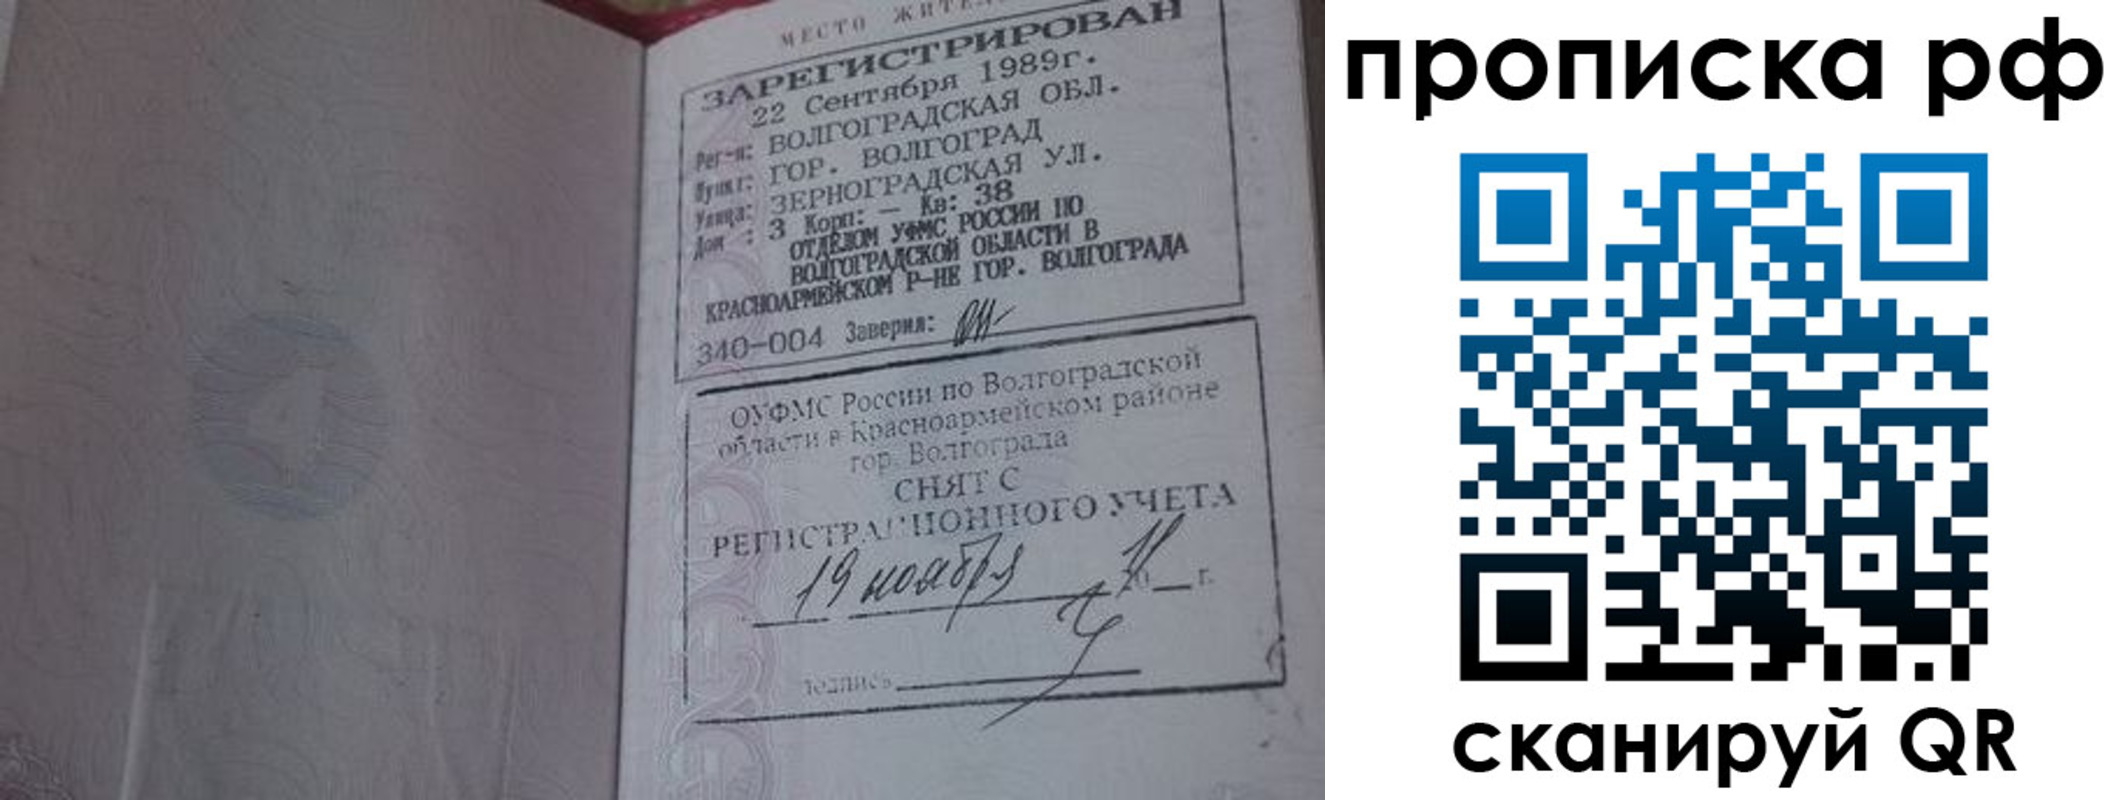 МЕСТО ЖИТЕЛ
ЗАРЕГИСТРИРОВАН
22 Сентября 1989г.
Рег-н: ВОЛГОГРАДСКАЯ ОБЛ.
Пункт: ГОР. ВОЛГОГРАД
Улица: ЗЕРНОГРАДСКАЯ УЛ.
Дом : 3 Корп: — Кв: 38
ОТДЕЛОМ УФМС РОССИИ ПО
ВОЛГОГРАДСКОЙ ОБЛАСТИ В
КРАСНОАРМЕЙСКОМ Р-НЕ ГОР. ВОЛГОГРАДА
340-004 Заверил:
ОУФМС России по Волгоградской
области в Красноармейском районе
гор. Волгограда
СНЯТ С
РЕГИСТРАЦИОННОГО УЧЕТА
19 ноября 20 11 г.
подпись
прописка рф
сканируй QR